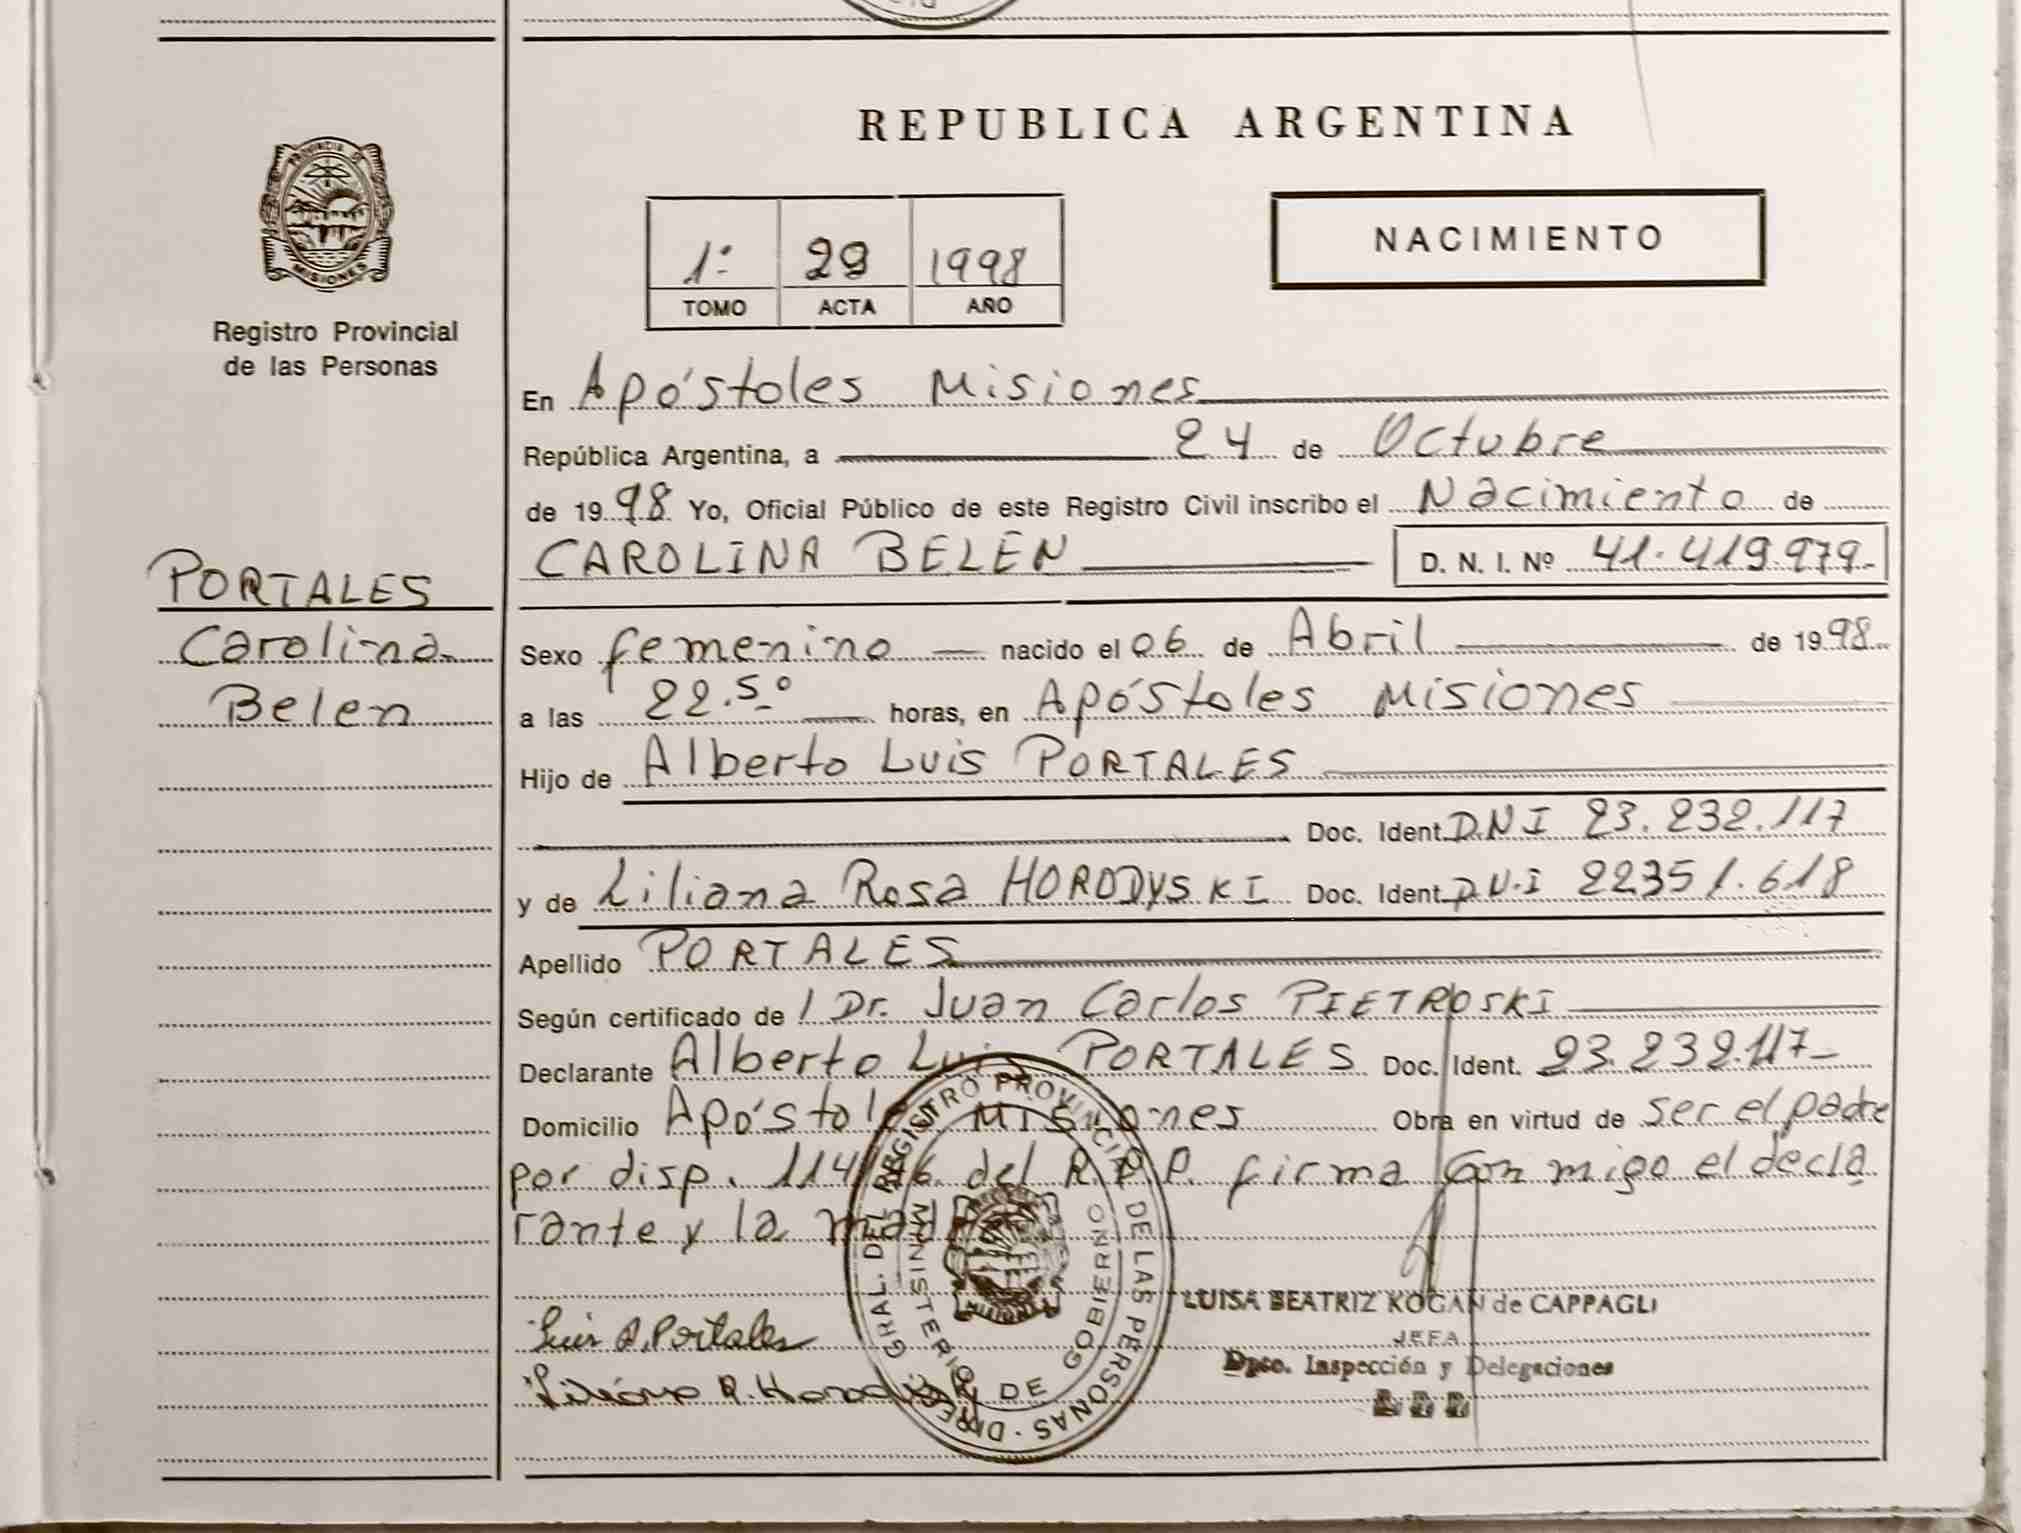 PROVINCIA DE
MISIONES
Registro Provincial
de las Personas
PORTALES
Carolina
Belen
REPUBLICA ARGENTINA
1º 29 1998
TOMO ACTA AÑO
NACIMIENTO
En Apóstoles Misiones
República Argentina, a 24 de Octubre
de 1998 Yo, Oficial Público de este Registro Civil inscribo el Nacimiento de
CAROLINA BELEN D. N. I. Nº 41.419.979
Sexo femenino nacido el 06 de Abril de 1998
a las 22.50 horas, en Apóstoles Misiones
Hijo de Alberto Luis PORTALES
Doc. Ident. DNI 23.232.117
y de Liliana Rosa HORODYSKI Doc. Ident. D.N.I 22351.618
Apellido PORTALES
Según certificado de / Dr. Juan Carlos PIETROSKI
Declarante Alberto Luis PORTALES Doc. Ident. 23.232.117
Domicilio Apóstoles Misiones Obra en virtud de ser el padre
por disp. 114/ del R.P.P. firma con migo el decla
rante y la mad
Luis A. Portales
Liliana R. Horodyski
DIREC. GRAL. DEL REGISTRO PROVINCIAL DE LAS PERSONAS
MINISTERIO DE GOBIERNO
MISIONES
LUISA BEATRIZ KOGAN de CAPPAGLI
JEFA
Dpto. Inspección y Delegaciones